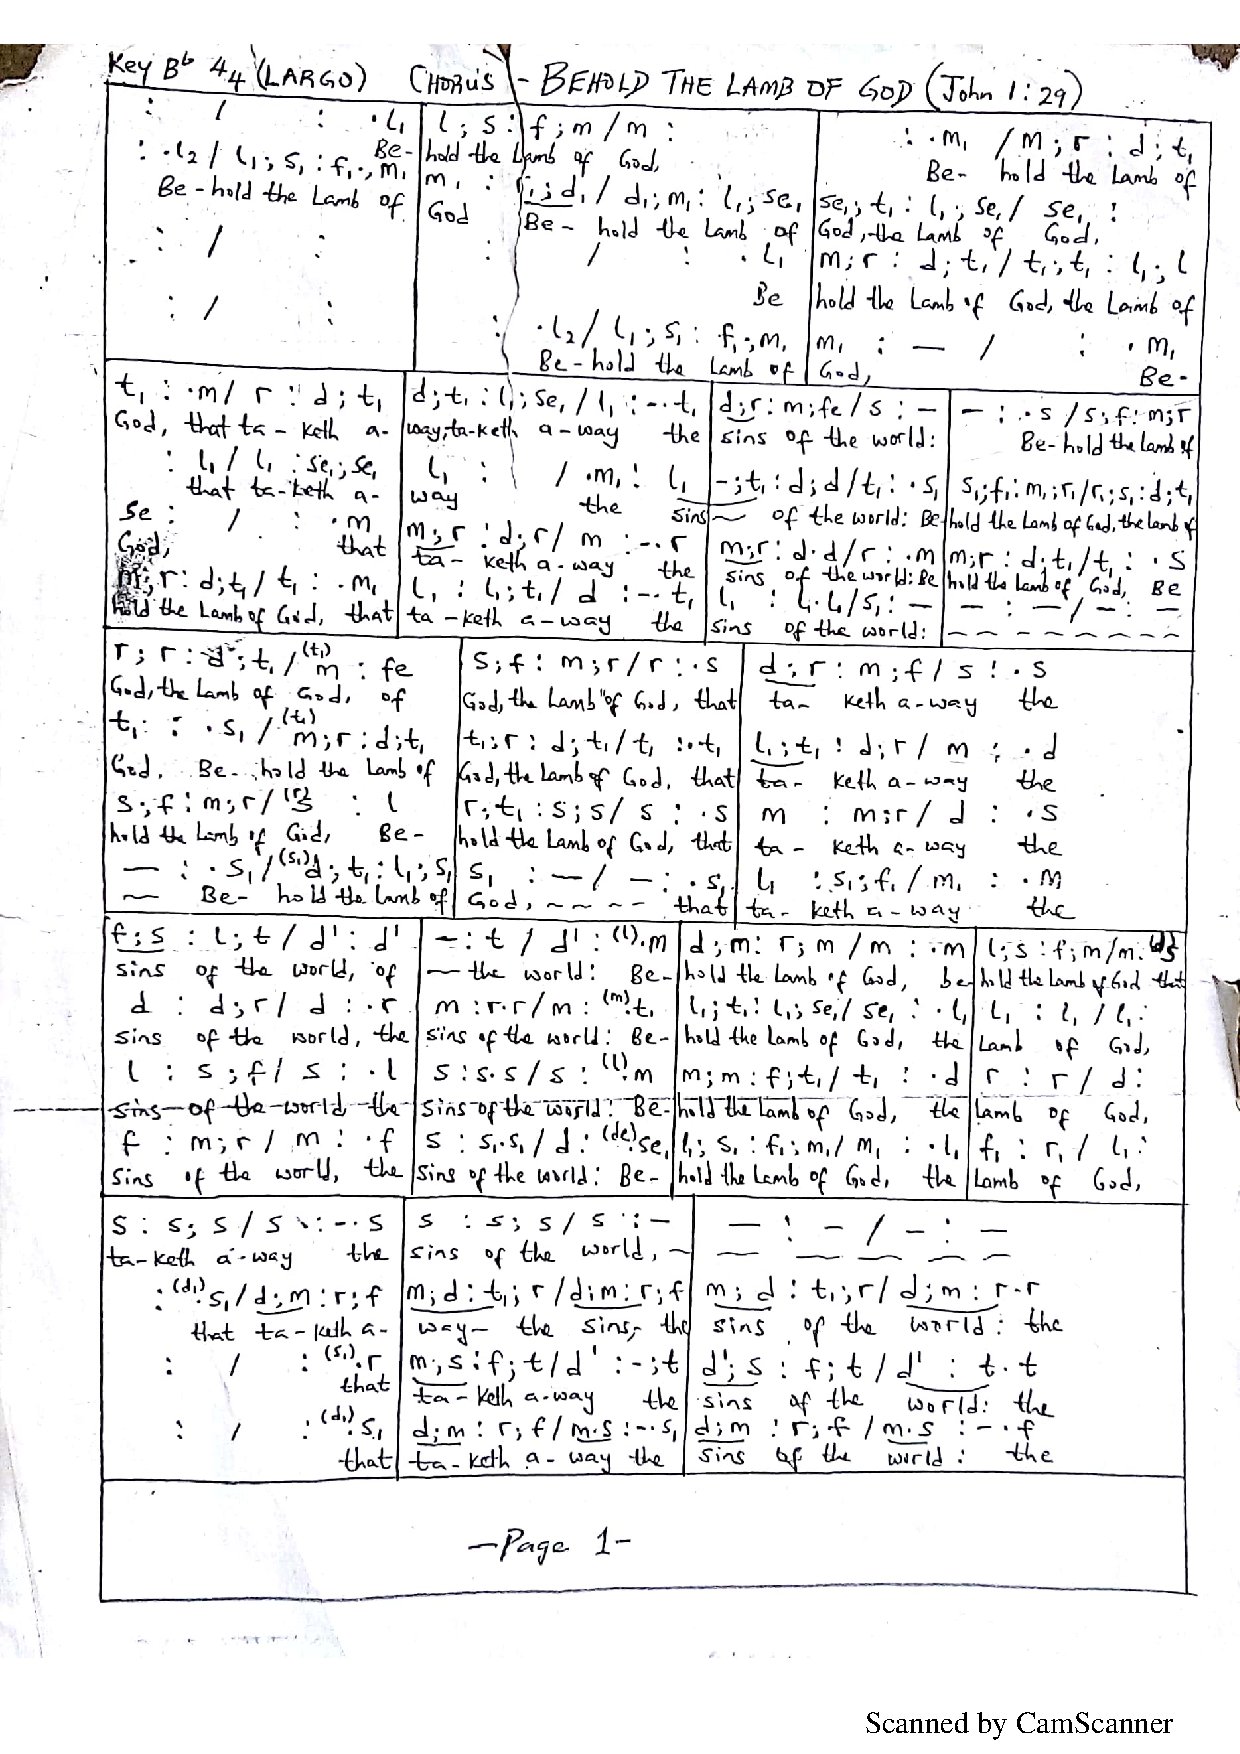 Key Bb 4/4 (LARGO) CHORUS - BEHOLD THE LAMB OF GOD (John 1:29)
: / : .l₁ | l ; s : f ; m / m : | : .m₁ / m ; r : d ; t₁
Be- | hold the Lamb of God, | Be- hold the Lamb of
: .l₂ / l₁ ; s₁ : f₁ ., m₁ | m₁ : l₁ ; d₁ / d₁ ; m₁ : l₁ ; se₁ | se₁ ; t₁ : l₁ ; se₁ / se₁ :
Be-hold the Lamb of | God Be- hold the Lamb of | God, the Lamb of God,
: / : | : / : .l₁ | m ; r : d ; t₁ / t₁ ; t₁ : l₁ ; l
Be | hold the Lamb of God, the Lamb of
: / : | : .l₂ / l₁ ; s₁ : f₁ ; m₁ | m₁ : — / : .m₁
Be-hold the Lamb of | God, Be-
t₁ : .m / r : d ; t₁ | d ; t₁ : l₁ ; se₁ / l₁ : -. t₁ | d ; r : m ; fe / s : — | — : .s / s ; f : m ; r
God, that ta-keth a- | way, ta-keth a-way the | sins of the world: | Be-hold the Lamb of
: l₁ / l₁ : se₁ ; se₁ | l₁ : / .m₁ : l₁ | - ; t₁ : d ; d / t₁ : .s₁ | s₁ ; f₁ : m₁ ; r₁ / r₁ ; s₁ : d ; t₁
that ta-keth a- | way the sins | ~ of the world: Be | hold the Lamb of God, the lamb of
se : / : .m | m ; r : d ; r / m : -. r | m ; r : d . d / r : .m | m ; r : d ; t₁ / t₁ : .s
God, that | ta- keth a-way the | sins of the world: Be | hold the Lamb of God, Be
m ; r : d ; t₁ / t₁ : .m₁ | l₁ : l₁ ; t₁ / d : -. t₁ | l₁ : l₁ . l₁ / s₁ : — | — : — / — : —
hold the Lamb of God, that | ta-keth a-way the | sins of the world: | ~ ~ ~ ~ ~ ~ ~
r ; r : d ; t₁ / (t₁) m : fe | s ; f : m ; r / r : .s | d ; r : m ; f / s : .s
God, the Lamb of God, of | God, the Lamb of God, that | ta- keth a-way the
t₁ : .s₁ / (t₁) m ; r : d ; t₁ | t₁ ; r : d ; t₁ / t₁ : .t₁ | l₁ ; t₁ : d ; r / m : .d
God. Be- hold the Lamb of | God, the Lamb of God, that | ta- keth a-way the
s ; f : m ; r / (r) s : l | r ; t₁ : s ; s / s : .s | m : m ; r / d : .s
hold the Lamb of God, Be- | hold the Lamb of God, that | ta- keth a-way the
— : .s₁ / (s₁) d ; t₁ : l₁ ; s₁ | s₁ : — / — : .s₁ | l₁ : s₁ ; f₁ / m₁ : .m
~ Be- hold the Lamb of | God, ~ ~ ~ ~ that | ta- keth a-way the
f ; s : l ; t / d' : d' | — : t / d' : (l) .m | d ; m : r ; m / m : .m | l ; s : f ; m / m . (d) s
sins of the world, of | ~ the world: Be- | hold the Lamb of God, be- | hold the Lamb of God that
d : d ; r / d : .r | m : r . r / m : (m) t₁ | l₁ ; t₁ : l₁ ; se₁ / se₁ : .l₁ | l₁ : l₁ / l₁ :
sins of the world, the | sins of the world: Be- | hold the Lamb of God, the | Lamb of God,
l : s ; f / s : .l | s : s . s / s : (l) .m | m ; m : f ; t₁ / t₁ : .d | r : r / d :
sins of the world the | sins of the world: Be- | hold the Lamb of God, the | lamb of God,
f : m ; r / m : .f | s : s₁ . s₁ / d : (de) .se₁ | l₁ ; s₁ : f₁ ; m₁ / m₁ : .l₁ | f₁ : r₁ / l₁ :
sins of the world, the | sins of the world: Be- | hold the Lamb of God, the | Lamb of God,
s : s ; s / s : -. s | s : s ; s / s : — | — : — / — : —
ta-keth a-way the | sins of the world, ~ | ~ ~ ~ ~ ~
: (d₁) .s₁ / d ; m : r ; f | m ; d : t₁ ; r / d ; m : r ; f | m ; d : t₁ ; r / d ; m : r . r
that ta-keth a- | way- the sins, the | sins of the world: the
: / : (s₁) .r | m ; s : f ; t / d' : - ; t | d' ; s : f ; t / d' : t . t
that | ta-keth a-way the | sins of the world: the
: / : (d₁) .s₁ | d ; m : r ; f / m . s : -. s₁ | d ; m : r ; f / m . s : -. f
that | ta-keth a-way the | sins of the world: the
-Page 1-
Scanned by CamScanner